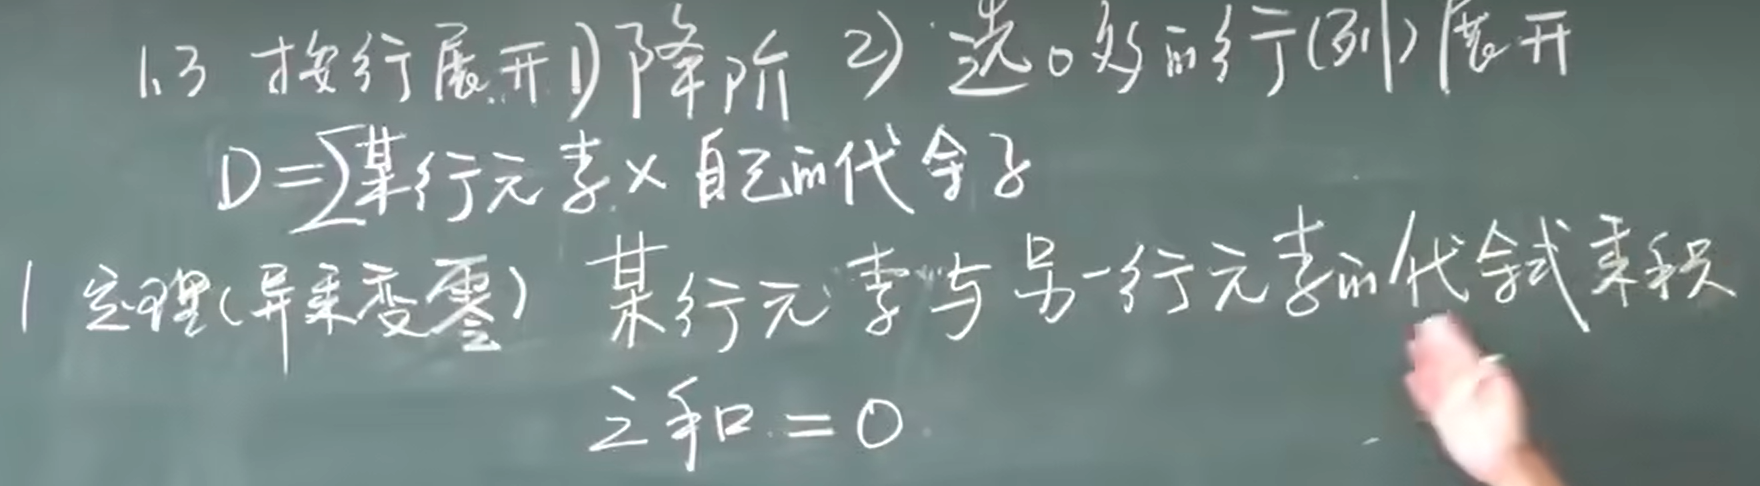 1.3 按行展开 1)降阶 2) 选0多的行(列)展开
D=∑某行元素×自己的代余子
1 定理(异乘变零) 某行元素与另一行元素的代余式乘积
之和=0